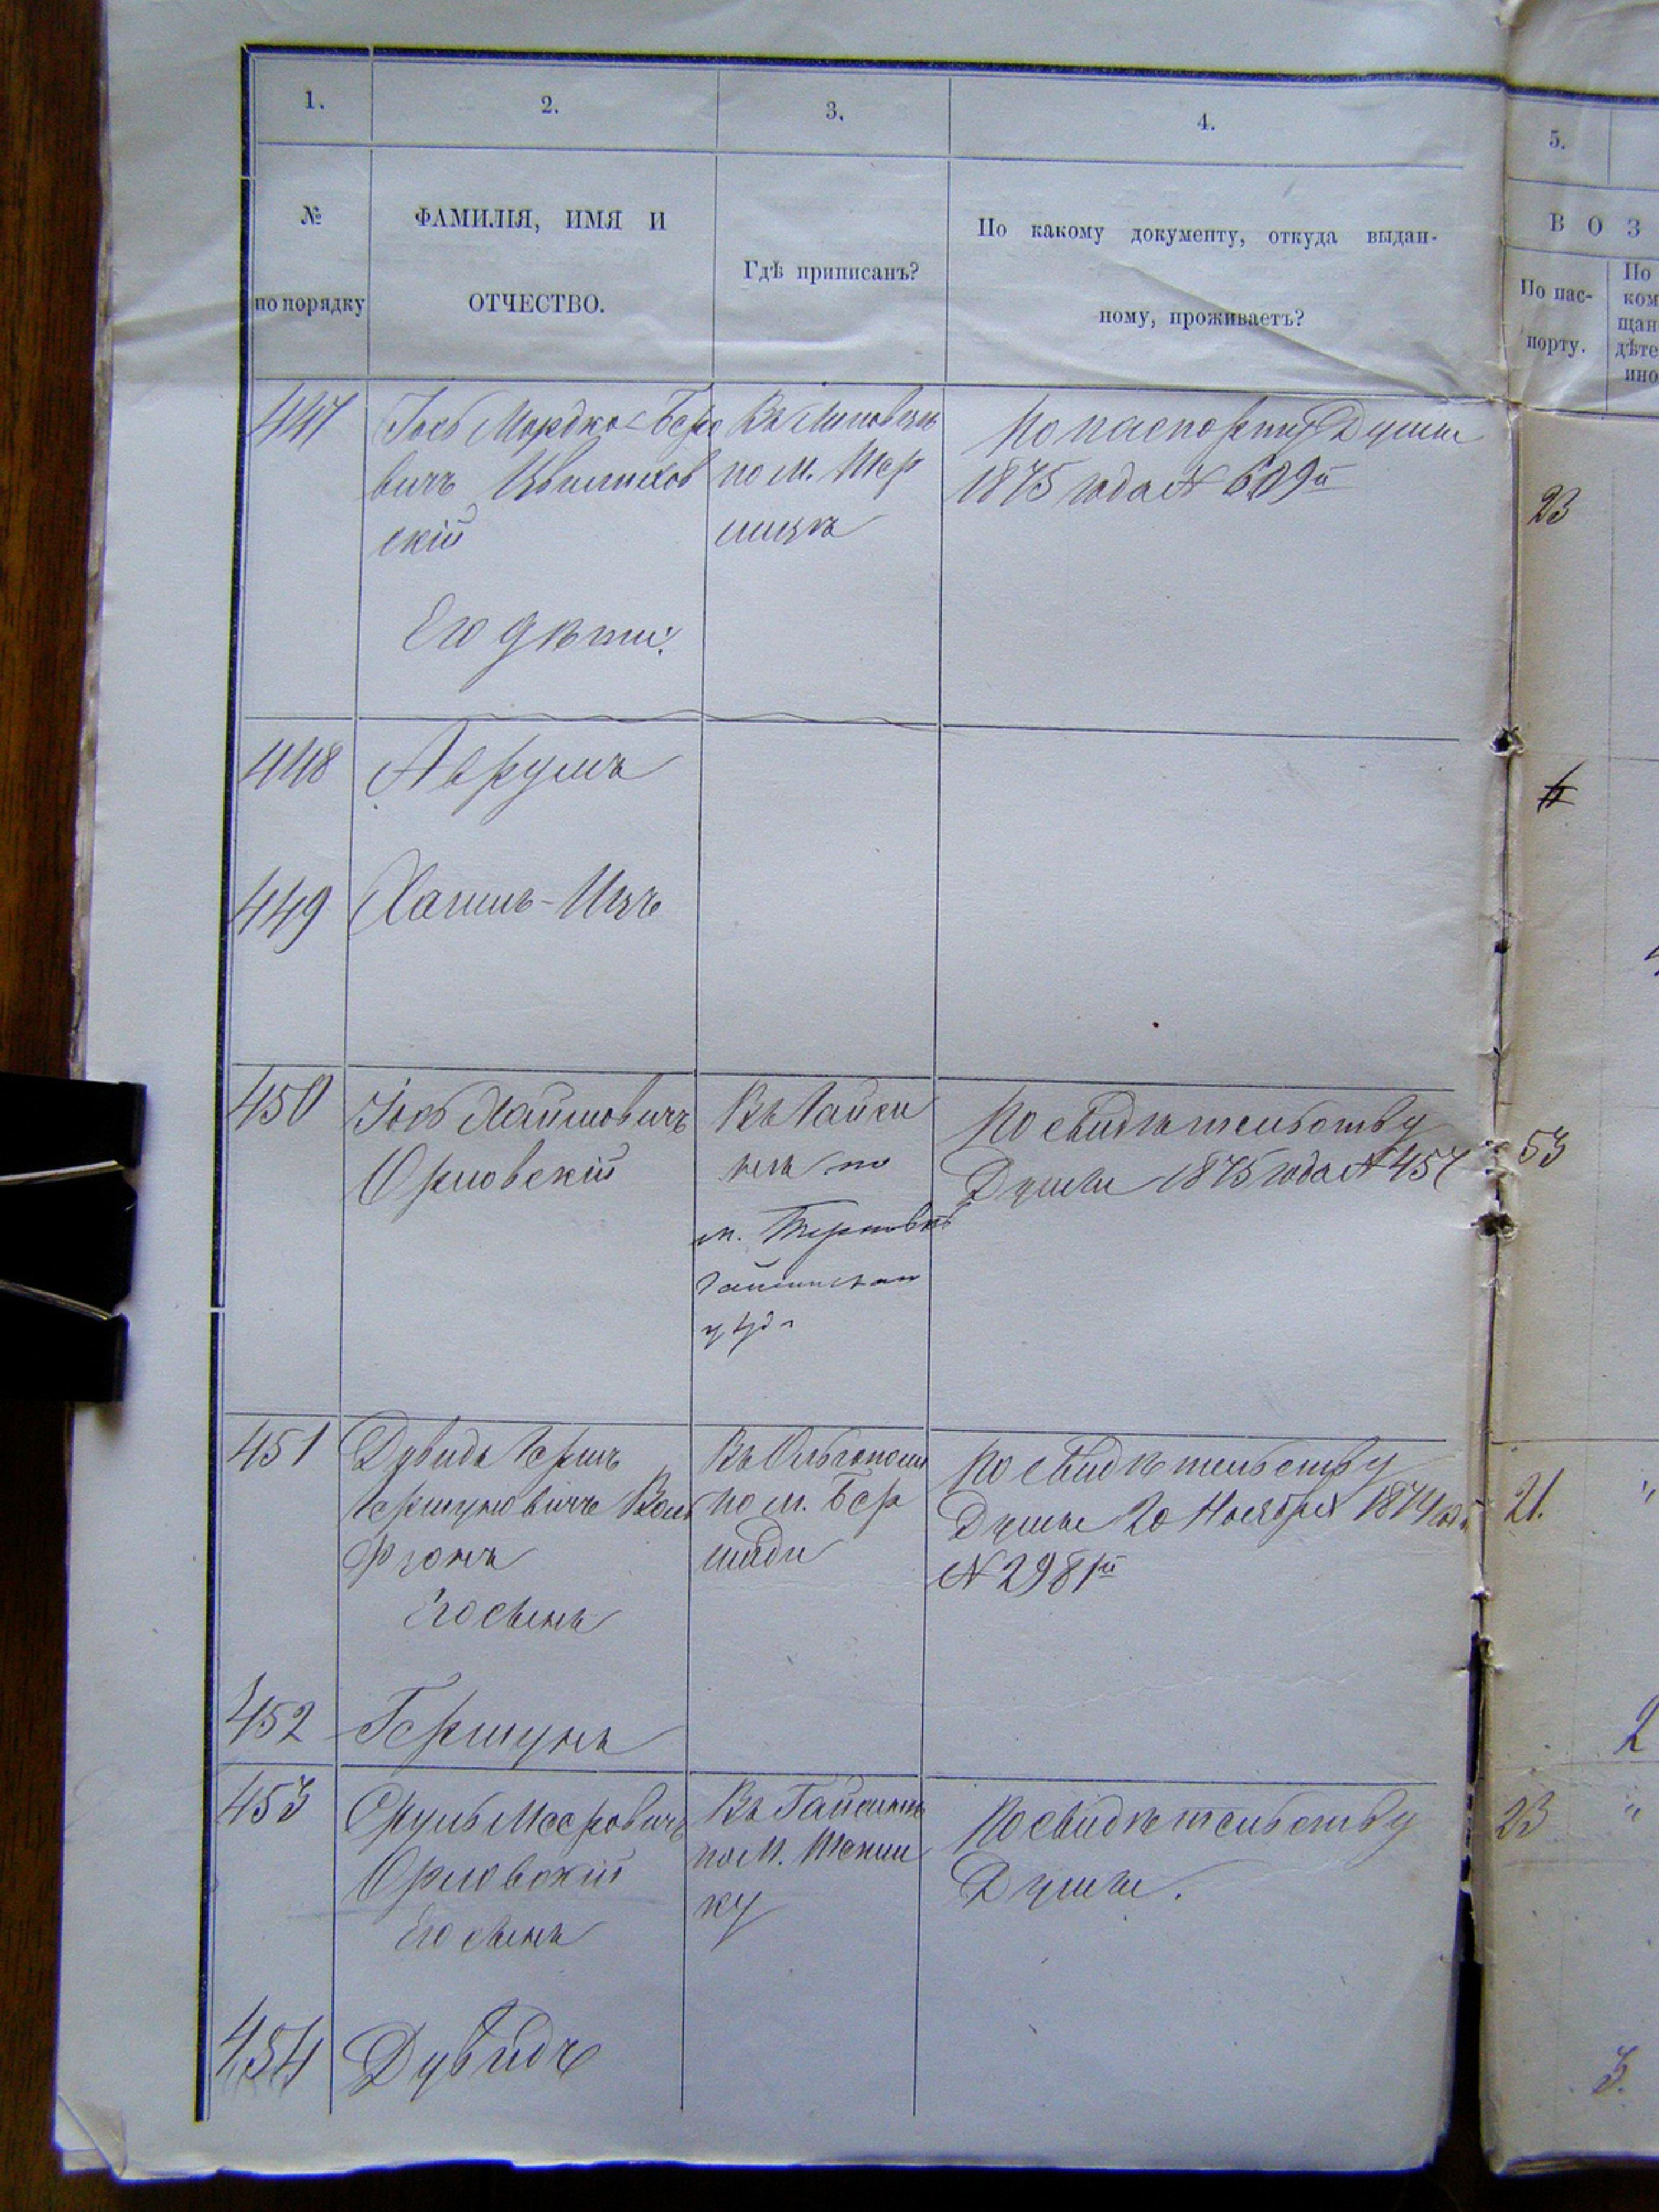 1.
2.
3.
4.
5.
№
по порядку
ФАМИЛІЯ, ИМЯ И
ОТЧЕСТВО.
Гдѣ приписанъ?
По какому документу, откуда выдан-
ному, проживаетъ?
В О З
По пас-
порту.
По
ком
щан
дѣте
ино
447
Іось Мордко-Беро
вичъ
скій
Его дѣти:
по м. Тер
По паспорту Думы
1875 года № 609й
23
448
Аврумъ
449
Хаимъ-Ицъ
450
Іось Хаимовичъ
Орловскій
по
м. Терновкѣ
По свидѣтельству
Думы 1875 года № 457
53
451
Дувидъ Гершъ
Гершуновичъ Воль
фзонъ
Его сынъ
Въ Ольгополи
по м. Бер
шади
По свидѣтельству
Думы 20 Ноября 1874 года
№ 2981й
21.
452
Гершунъ
2
453
Сруль Мееровичъ
Орловскій
Его сынъ
Въ Гайсинѣ
по м. Тепли
ку
По свидѣтельству
Думы.
23
454
Дувидъ
3.